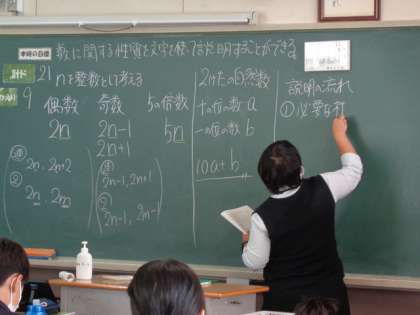 本時の目標
数に関する性質を文字を使って説明することができる。
21
nを整数と考える
9
偶数
2n
2n, 2n+2
2n, 2m
奇数
2n-1
2n+1
2n-1, 2n+1
2n-1, 2m-1
5の倍数
5n
2けたの自然数
十の位の数 a
一の位の数 b
10a+b
説明の流れ
① 必要な